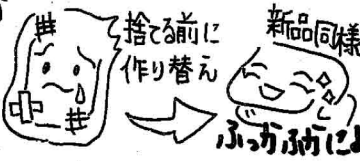 捨てる前に
作り替え
新品同様
ふっかふかに!